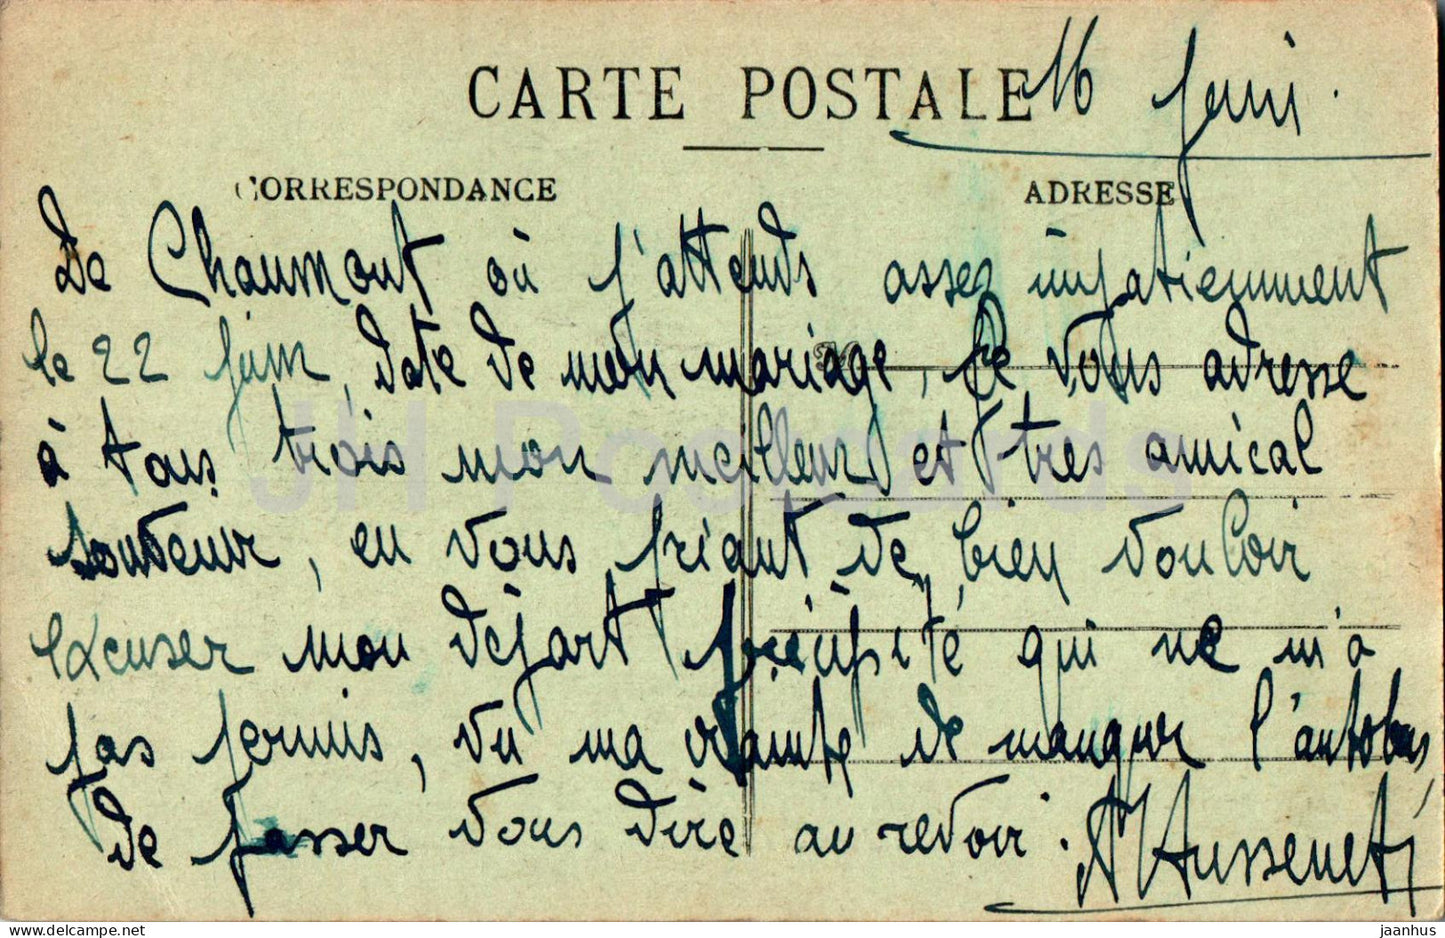 CARTE POSTALE
16 Juin.
CORRESPONDANCE
ADRESSE
De Chaumont où j'attends assez impatiemment
le 22 juin, date de mon mariage, je vous adresse
à tous trois mon meilleur et très amical
souvenir, en vous priant de bien vouloir
excuser mon départ précipité qui ne m'a
pas permis, vu ma crainte de manquer l'autobus,
de passer vous dire au revoir.
JH Postcards
jaanhus